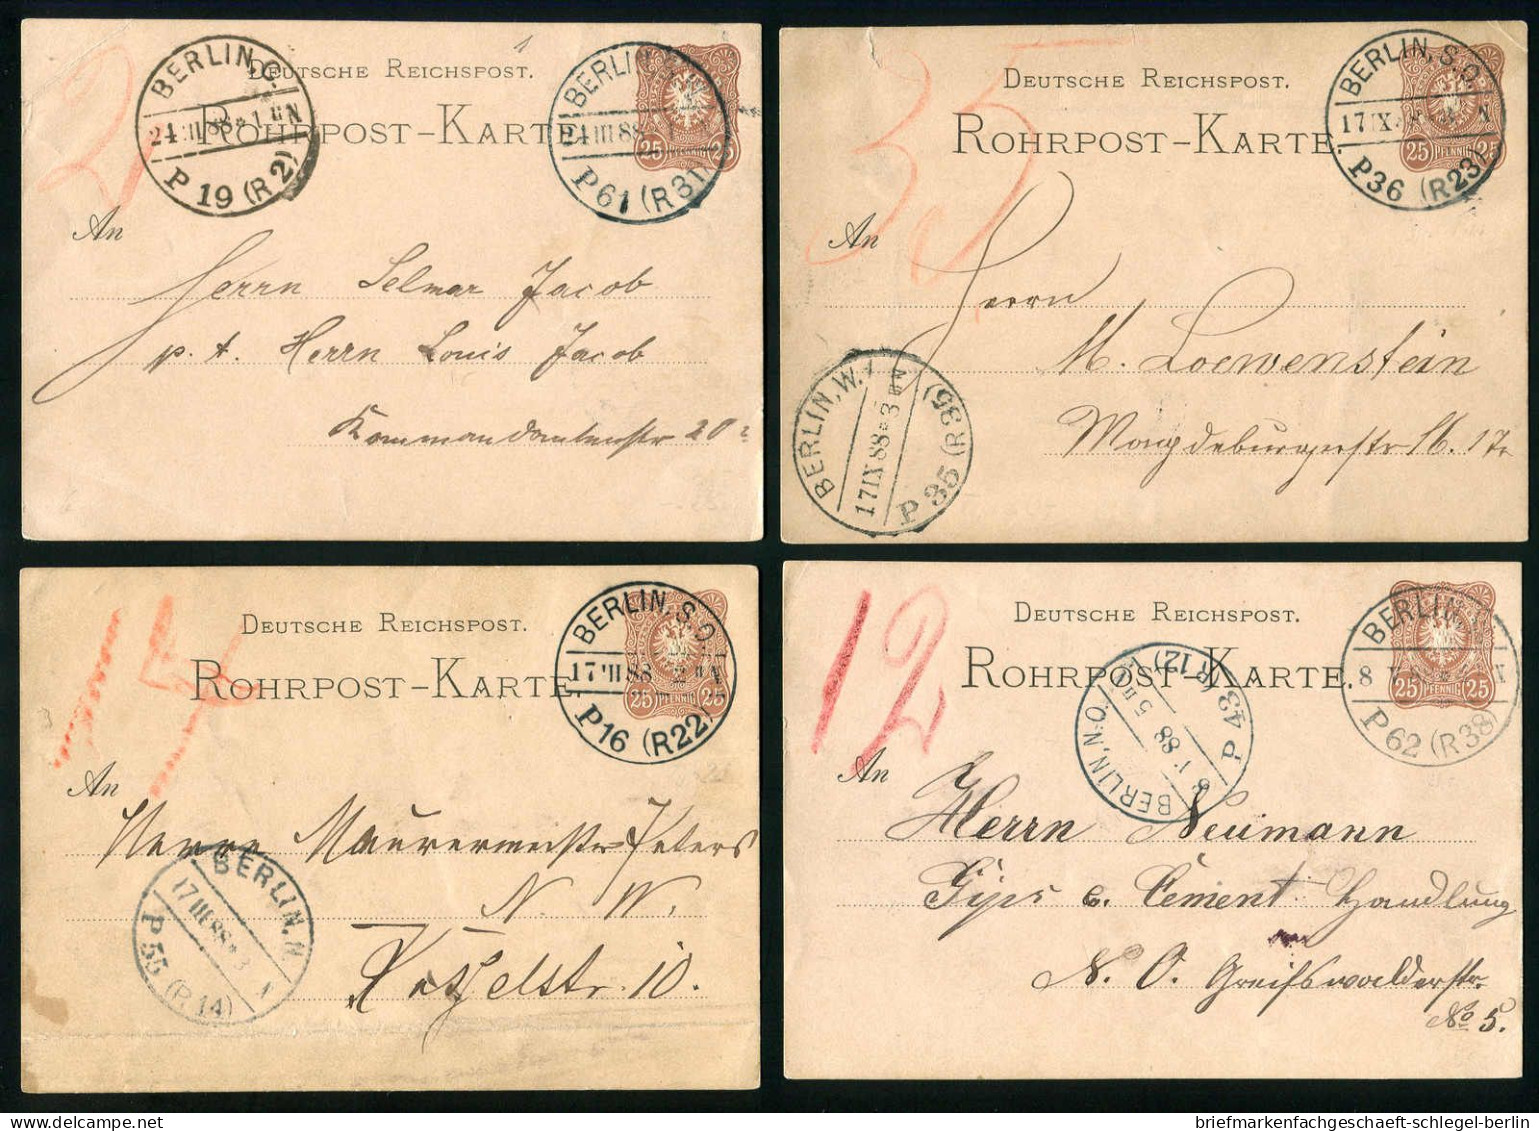 DEUTSCHE REICHSPOST.
ROHRPOST-KARTE
BERLIN, C.
P 19 (R 2)
BERLIN
24 III 88
P 61 (R 31)
25 PFENNIG 25
An
Herrn Selmar Jacob
p. A. Herrn Louis Jacob
Kommandantenstr 20
35
DEUTSCHE REICHSPOST.
ROHRPOST-KARTE.
BERLIN, S.O.
17 IX
P 36 (R 23)
25 PFENNIG 25
An
Herrn
M. Loewenstein
Magdeburgerstr
BERLIN, W.
17 IX 88 * 3 N
P 35 (R 35)
DEUTSCHE REICHSPOST.
ROHRPOST-KARTE.
BERLIN, S.O.
17 III 88
P 16 (R 22)
25 PFENNIG 25
An
Herrn Maurermeister Peters
N. W.
10.
BERLIN. N.
17 III 88 * 3
P 55 (R. 14)
12
DEUTSCHE REICHSPOST.
ROHRPOST-KARTE.
BERLIN
8 V
P 62 (R 38)
25 PFENNIG 25
BERLIN, N.O.
8 V 88 5
P 43 (R 12)
An
Herrn Neumann
Gips & Cement Handlung
N. O. Greifswalderstr.
No 5.
briefmarkenfachgeschaeft-schlegel-berlin